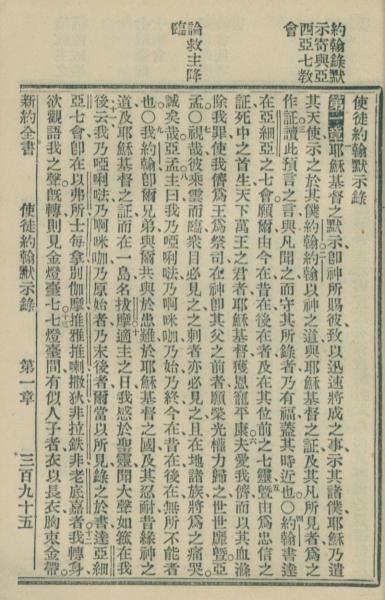 約翰錄默
示寄與亞
西亞七教
會
論救主降
臨
使徒約翰默示錄
第一章耶穌基督之默示即神所賜彼致以迅速將成之事示其諸僕耶穌乃遣
其天使示之於其僕約翰約翰以神之道與耶穌基督之証及其凡所見者爲之
作証讀此預言之言與凡聞之而守其所錄者乃有福蓋其時近也○約翰書達
在亞細亞之七會願爾由今在昔在後在者及在其位前之七靈暨由爲忠信之
証死中之首生天下萬王之君者耶穌基督獲恩寵平康夫愛我儕而以其血滌
除我罪使我儕爲王爲祭司在神即其父之前者願榮光權力歸之世世靡曁亞
孟○視哉彼乘雲而臨衆目必見之之刺者亦必見之且在地諸族將爲之痛哭
誠矣哉亞孟主曰我乃啞唎㳒乃啊咪咖乃始乃終今在昔在後在無所不能者
也○我約翰即爾兄弟與爾共與於患難於耶穌基督之國及其忍耐昔緣神之
道及耶穌基督之証而在一島名拔摩適主之日我感於聖靈聞大聲如箛在我
後云我乃啞唎㳒乃啊咪咖乃原始者乃末後者爾當以所見錄之於書達亞細
亞七會即在以弗所士每拿別伽摩推雅推喇撒狄非拉鉄非老底嘉者我轉身
欲觀語我之聲既轉則見金燈臺七七燈臺間有似人子者衣以長衣胸束金帶
新約全書 使徒約翰默示錄 第一章 三百九十五